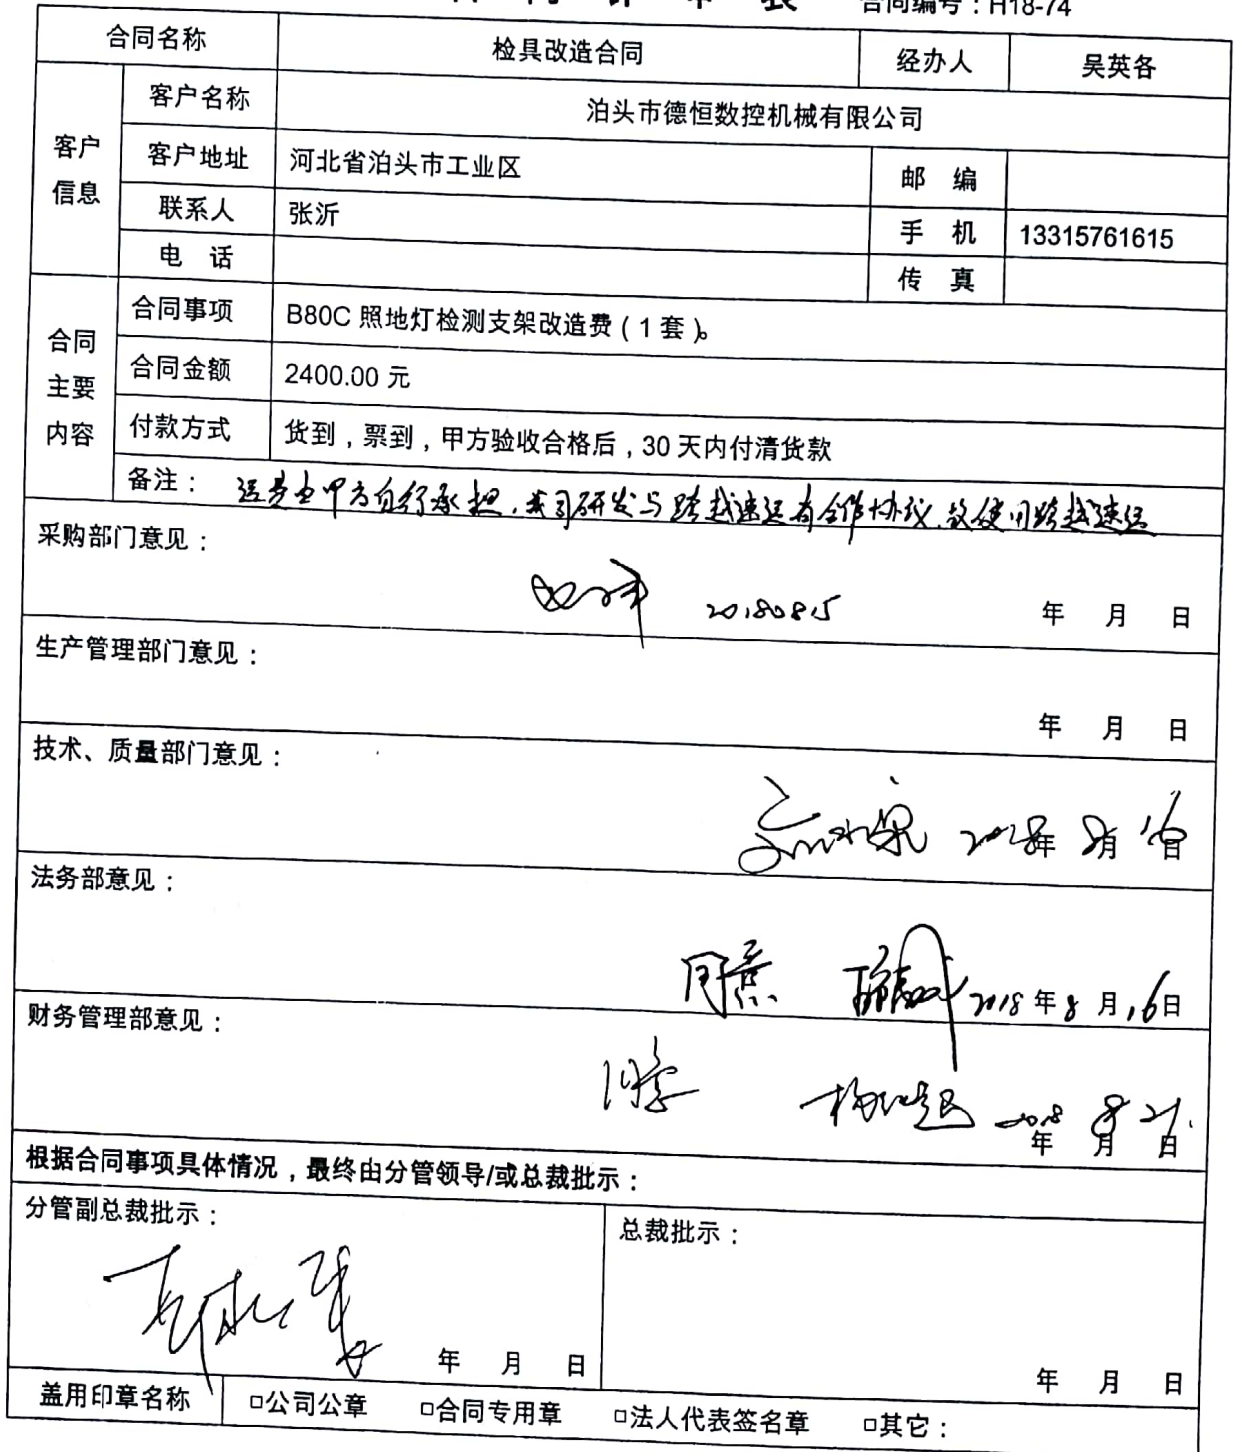 合同编号：H18-74
合同名称 检具改造合同 经办人 吴英各
客户信息 客户名称 泊头市德恒数控机械有限公司
客户地址 河北省泊头市工业区 邮 编
联系人 张沂 手 机 13315761615
电 话 传 真
合同主要内容 合同事项 B80C 照地灯检测支架改造费（1 套）。
合同金额 2400.00 元
付款方式 货到，票到，甲方验收合格后，30 天内付清货款
备注： 运费由甲方自行承担，我司研发与跨越速运有合作协议，故使用跨越速运
采购部门意见：
20180815 年 月 日
生产管理部门意见：
年 月 日
技术、质量部门意见：
2018年 8月 16日
法务部意见：
2018 年 8 月 16日
财务管理部意见：
2018 年 8 月 21 日
根据合同事项具体情况，最终由分管领导/或总裁批示：
分管副总裁批示： 总裁批示：
年 月 日 年 月 日
盖用印章名称 □公司公章 □合同专用章 □法人代表签名章 □其它：